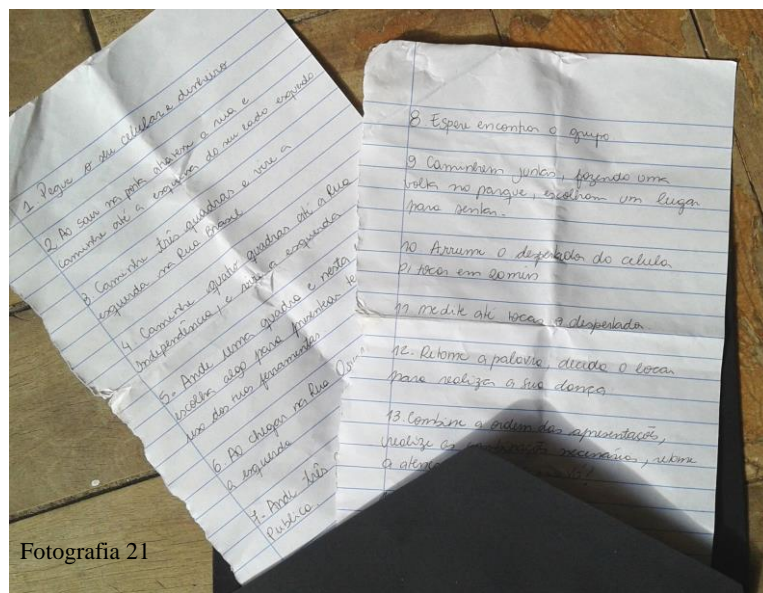 1 Pegue o seu celular e dinheiro
2. Ao sair na porta atravesse a rua e
caminhe até a esquina do seu lado esquerdo
3. Caminhe três quadras e vire a
esquerda na Rua Brasil
4. Caminhe quatro quadras até a Rua
Independência, e vire a esquerda
5. Ande uma quadra e nesta
escolha algo para presentear
uso dos nos ferramentas
6. Ao chegar na Rua
a esquerda
7. Ande três
Público
8 Espere encontrar o grupo
9 Caminhem juntos, fazendo uma
volta no parque, escolham um lugar
para sentar.
10 Arrume o despertador do celular
p/ tocar em 20min
11 medite até tocar o despertador
12. Retome a palavra, decida o local
para realizar a sua dança
13. Combine a ordem das apresentações,
realize as necessárias, retome
a
Fotografia 21